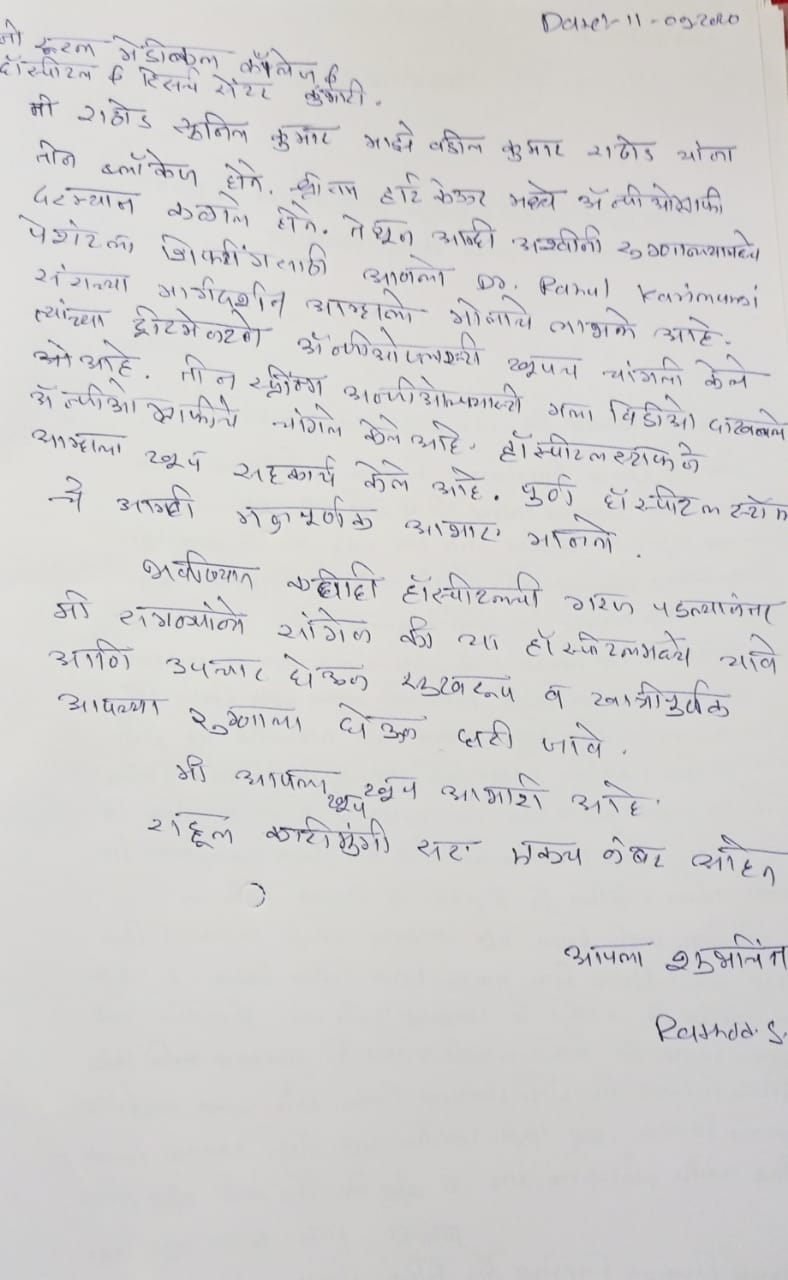 Date:- 11-09-2020
रूरल मेडीकल कॉलेज &
हॉस्पीटल & रिसर्च सेंटर कुंभारी.
मी राठोड सुनिल कुमार माझे वडील कुमार राठोड यांना
तीन ब्लॉकेज होते. हार्ट केअर मध्ये अँन्जीओग्राफी
दरम्यान कळाले होते. तेथून आम्ही अश्वीनी रुग्णालयामध्ये
पेशंटला शिफटींगसाठी आणलो Dr. Rahul Karimungi
सरांच्या मार्गदर्शन आम्हाला मोलाचे लाभले आहे.
त्यांच्या ट्रीटमेन्टने अँन्जीओप्लास्टी खूपच चांगली केले
आहे. तीन अन्जीओप्लास्टी मला विडीओ दाखवले
अँन्जीओग्राफीचे चांगले केले आहे. हॉस्पीटल स्टाफने
आम्हाला खूप सहकार्य केले आहे. पुर्ण हॉस्पीटल स्टॉफ
चे आम्ही मनपूर्णक आभार मानतो.
भवीष्यात कधीही हॉस्पीटलची गरज पडल्यानंतर
मी सगळ्यांना सांगेल की या हॉस्पीटलमध्ये यावे
आणि उपचार घेऊन सुखरूप व खात्रीपुर्वक
आपल्या रुग्णाला घेऊन घरी जावे.
मी आपला खूप खूप आभारी आहे
राहूल कारीमुंगी सर एक नंबर आहेत
आपला शुभचिंत
Rathod. S.